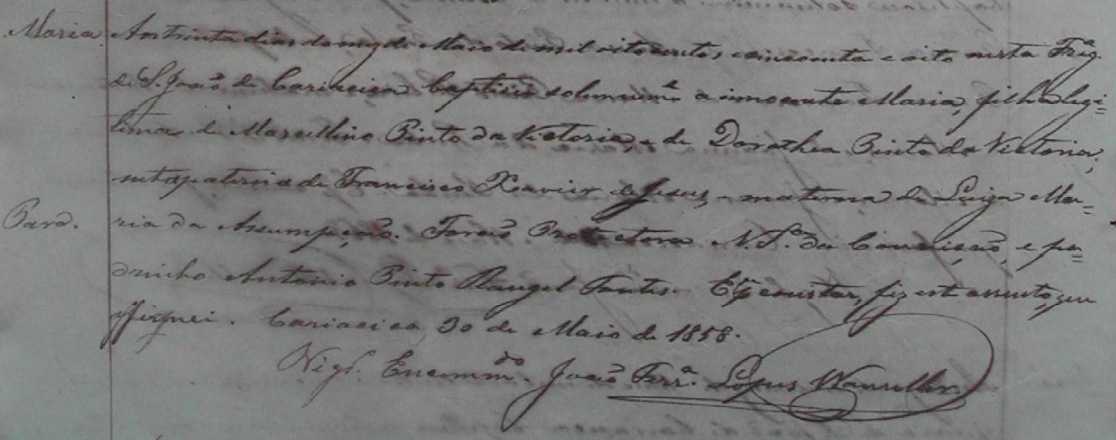 Maria
Aos trinta dias do mez de Maio de mil oitocentos cincoenta e oito nesta Freg.ª
de S. João de Cariacica baptisei solemnem.e a innocente Maria, filha legi=
tima de Marcellino Pinto da Victoria, e de Dorothea Pinto da Victoria,
neta paterna de Francisco Xavier de Jesus, e materna de Luiza Ma=
Pard.
ria da Assumpção. Forão Protectora N. S.ra da Conceição, e pa=
drinho Antonio Pinto Rangel Fontes. E p.ª constar, fiz este assento, que
assignei. Cariacica, 30 de Maio de 1858.
Vigr.º Encomm.do João Ferr.ª Lopes Wanzeller